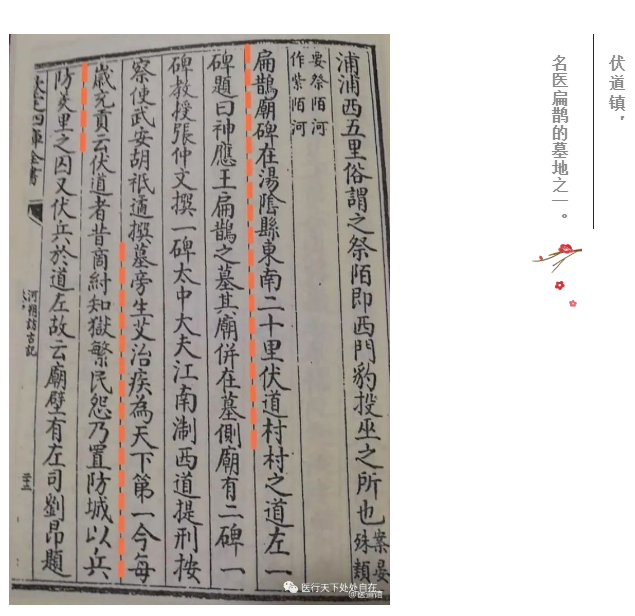 伏道镇，
名医扁鹊的墓地之一。
浦浦西五里俗謂之祭陌即西門豹投巫之所也案晏殊類
要祭陌河
作紫陌河
扁鵲廟碑在湯陰縣東南二十里伏道村村之道左一
碑題曰神應王扁鵲之墓其廟併在墓側廟有二碑一
碑教授張仲文撰一碑太中大夫江南淛西道提刑按
察使武安胡祗遹撰墓旁生艾治疾為天下第一今每
歲充貢云伏道者昔商紂知獄繁民怨乃置防城以兵
防羑里之囚又伏兵於道左故云廟壁有左司劉昂題
四庫全書
河朔訪古記
医行天下处处自在